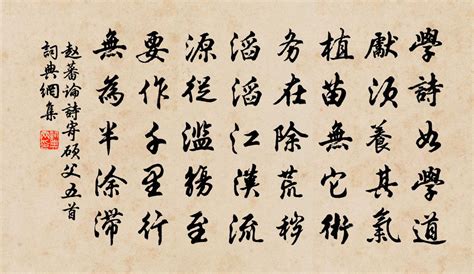 學詩如學道
獻須養其氣
植苗無它術
務在除荒穢
滔滔江漢流
源從濫觴至
要作千里行
無為半涂滯
趙蕃論詩寄碩父五首
詞典網集